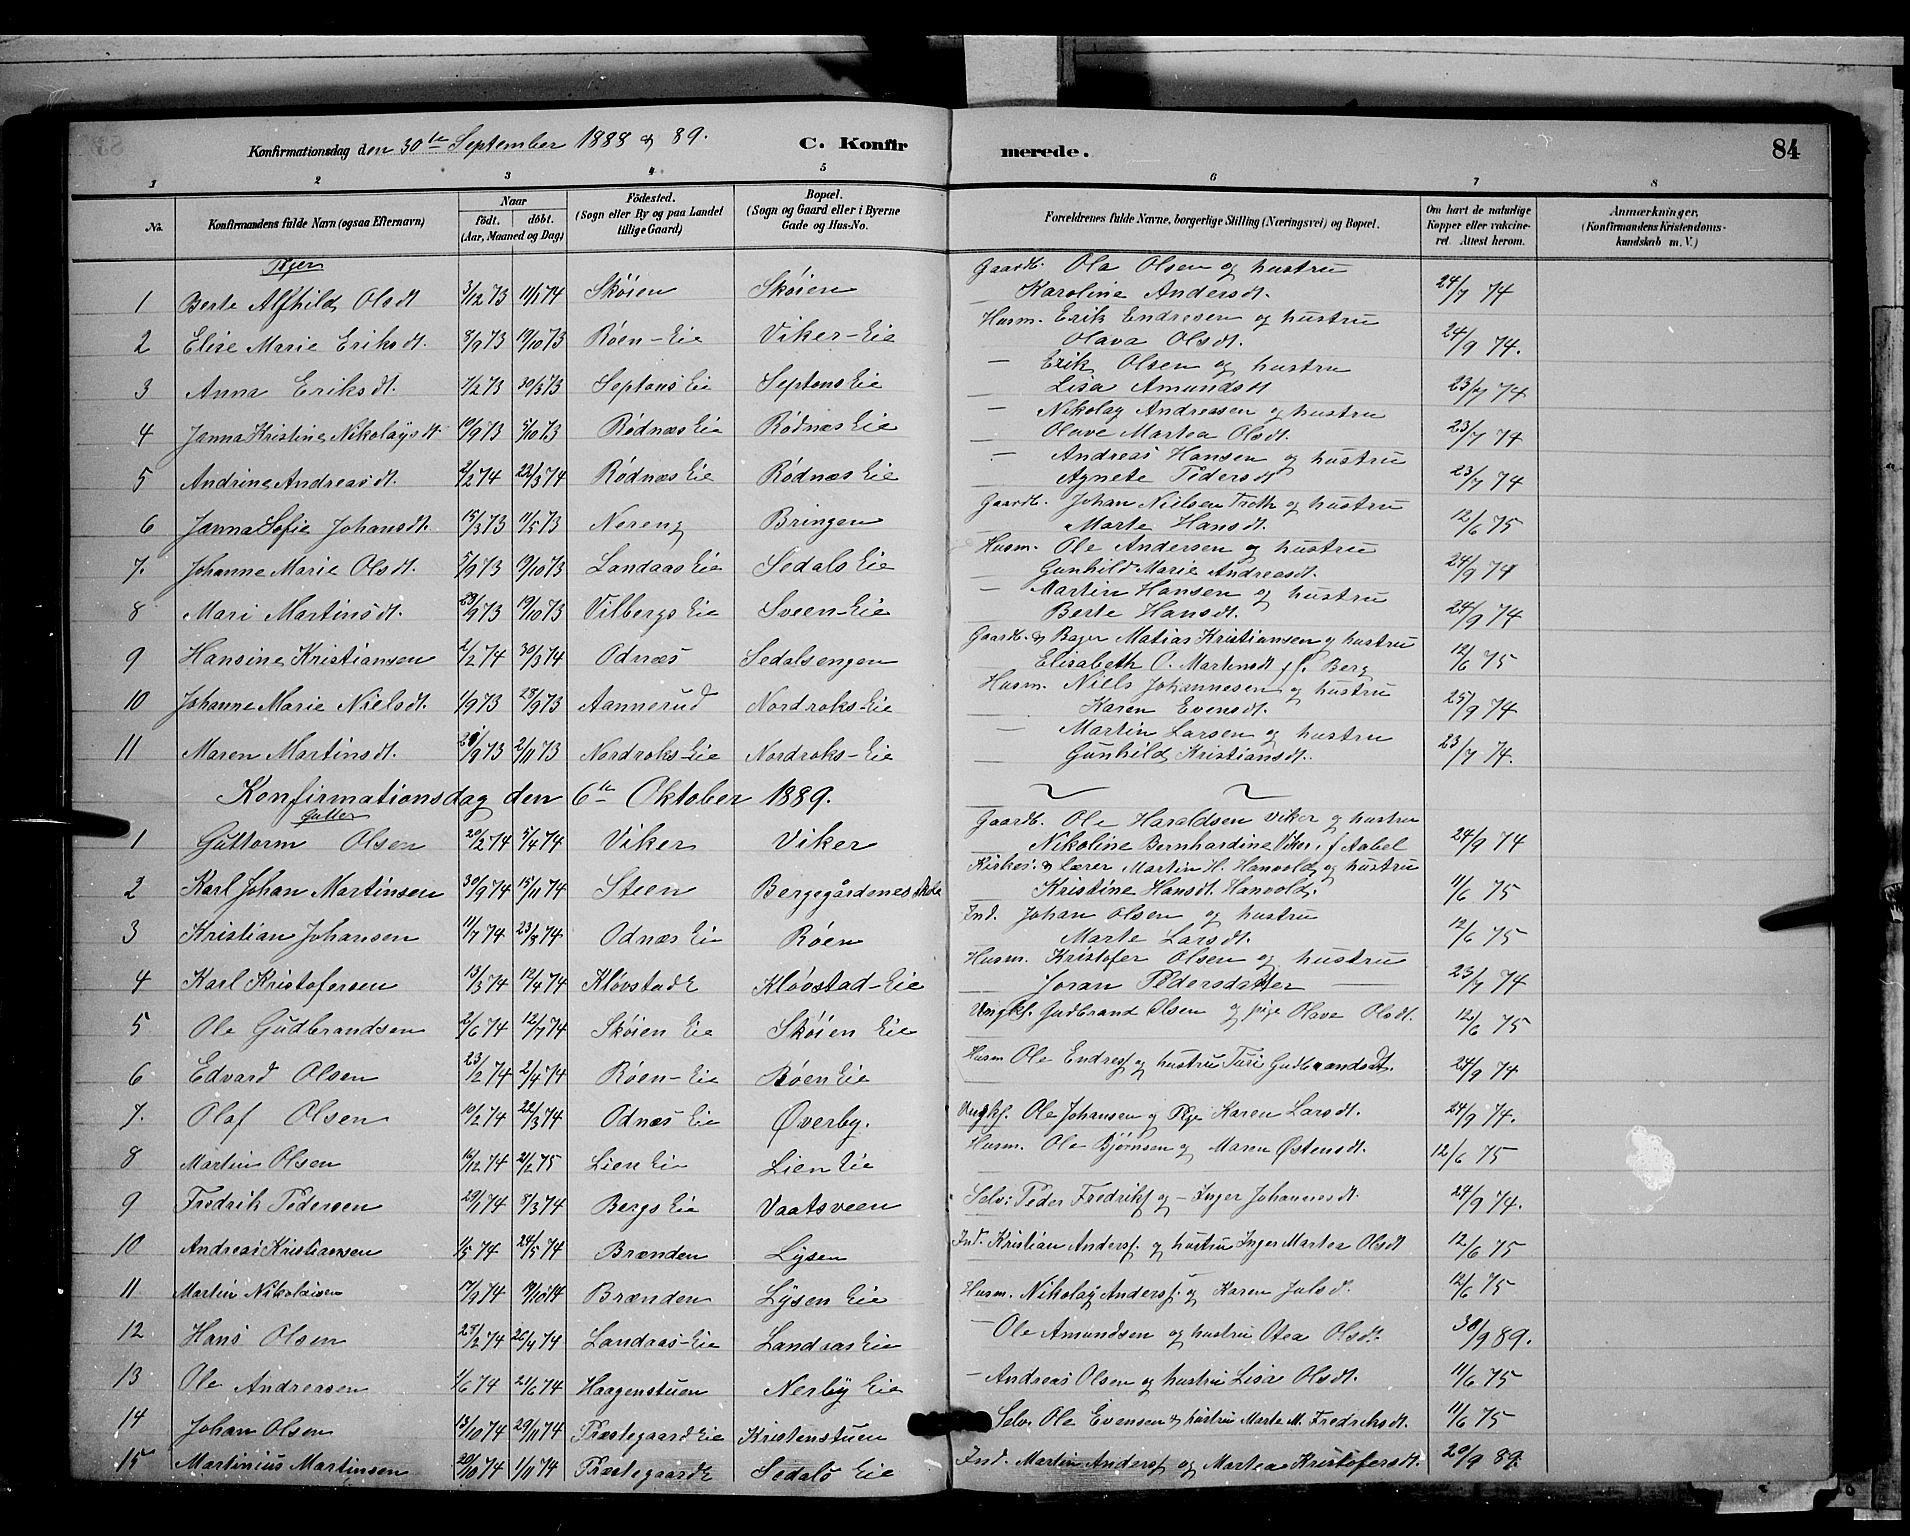 Konfirmationsdag den 30te September 1888 & 89. C. Konfirmerede. 84
1 2 3 4 5 6 7 8
No. Konfirmandens fulde Navn (ogsaa Efternavn) Naar født. døbt. (Aar, Maaned og Dag) Födested. (Sogn eller By og paa Landet tillige Gaard) Bopæl. (Sogn og Gaard eller i Byerne Gade og Hus-No. Forældrenes fulde Navne, borgerlige Stilling (Næringsvei) og Bopæl. Om havt de naturlige Kopper eller vakcineret. Attest herom. Anmærkninger. (Konfirmandens Kristendomskundskab m. V.)
Piger
1 Berte Alfhild Olsdt 3/12 73 11/1 74 Skøien Skøien Gaardb. Ola Olsen og hustru Karoline Andersdt. 24/7 74
2 Elise Marie Eriksdt. 8/9 73 19/10 73 Røen-Eie Viker-Eie Husm. Erik Endresen og hustru Olava Olsdt. 24/9 74.
3 Anna Eriksdt. 1/2 73 20/3 73 Septons Eie Septons Eie — Erik Olsen og hustru Lisa Amundsdt 23/7 74
4 Janna Kristine Nikolaysdt 10/9 73 5/10 73 Rødnæs Eie Rødnæs Eie — Nikolay Andreasen og hustru Olave Martea Olsdt. 23/7 74
5 Andrine Andreasdt. 2/2 74 22/3 74 Rødnæs Eie Rødnæs Eie — Andreas Hansen og hustru Agnete Pedersdt 23/7 74
6 Janna Sofie Johansdt. 15/3 73 11/5 73 Nereng Bringen Gaardb. Johan Nielsen Troth og hustru Marte Hansdt. 12/6 75
7. Johanne Marie Olsdt. 5/9 73 19/10 73 Landaas Eie Sedals Eie Husm. Ole Andersen og hustru Gunhild Marie Andreasdt. 24/9 74
8 Mari Martinsdt. 23/9 73 19/10 73 Vilbergs Eie Sveen-Eie — Martin Hansen og hustru Berte Hansdt. 24/9 74
9 Hansine Kristiansen 2/2 74 20/3 74 Odnæs Sedalsengen Gaardb. & Bager Matias Kristiansen og hustru Elisabeth O. Martensdt f. Berg 12/6 75
10 Johanne Marie Nielsdt. 1/9 73 28/9 73 Aannerud Nordroks-Eie Husm. Niels Johannesen og hustru Karen Evensdt. 25/9 74
11 Maren Martinsdt. 21/9 73 2/11 73 Nordroks-Eie Nordroks-Eie — Martin Larsen og hustru Gunhild Kristiansdt. 23/7 74.
Konfirmationsdag den 6te Oktober 1889.
Gutter
1 Guttorm Olsen 20/2 74 5/4 74 Viker Viker Gaardb. Ole Haraldsen Viker og hustru Nikoline Bernhardine Viker f. Aabel 24/9 74
2 Karl Johan Martinsen 30/9 74 15/11 74 Steen Bergegårdenes Kirkes. & Lærer Martin H. Hanvold og hustru Kristine Hansdt. Hanvold. 11/6 75
3 Kristian Johansen 11/7 74 23/8 74 Odnæs Eie Røen Ind. Johan Olsen og hustru Marte Larsdt. 12/6 75
4 Karl Kristofersen 13/3 74 12/4 74 Kløvstad E Kløvstad-Eie Husm. Kristofer Olsen og hustru Joran Pedersdatter 23/7 74
5 Ole Gudbrandsen 2/6 74 12/7 74 Skøien Eie Skøien Eie Ungkf. Gudbrand Olsen og pige Olave Olsdt. 12/6 75
6 Edvard Olsen 23/2 74 2/4 74 Røen-Eie Røen Eie Husm Ole Endresf og hustru Turi Gudbrandsdt. 24/9 74
7. Olaf Olsen 10/2 74 22/3 74 Odnæs Eie Øverby. Ungkf. Ole Johansen og Pige Karen Larsdt. 24/9 74.
8 Martin Olsen 16/12 74 2/2 75 Lien Eie Lien Eie Husm. Ole Bjørnsen og Maren Østensdt. 12/6 75
9 Fredrik Pedersen 29/1 74 8/3 74 Bergs Eie Vaatsveen Selv: Peder Fredrikf og — Inger Johannesdt 24/9 74.
10 Andreas Kristiansen 1/5 74 24/5 74 Brænden Lysen Ind. Kristian Andersf. og hustru Inger Martea Olsdt 12/6 75
11 Martin Nikolaisen 17/9 74 19/10 74 Brænden Lysen Eie Husm. Nikolay Andersf og Karen Julsd. 12/6 75
12 Hans Olsen 28/2 74 26/4 74 Landaas-Eie Landaas Eie — Ole Amundsen og hustru Otea Olsdt. 30/9 89.
13 Ole Andreasen 1/6 74 21/6 74 Haagenstuen Nerby Eie — Andreas Olsen og hustru Lise Olsdt. 11/6 75
14 Johan Olsen 13/10 74 29/11 74 Præstegaard Eie Kristenstuen Selv. Ole Evensen & hustru Marte M. Fredriksdt. 11/6 75
15 Martinius Martinsen 20/10 74 1/11 74 Præstegaard E Sedals Eie Ind. Martin Andersf og Martea Kristofersdt. 20/9 89.